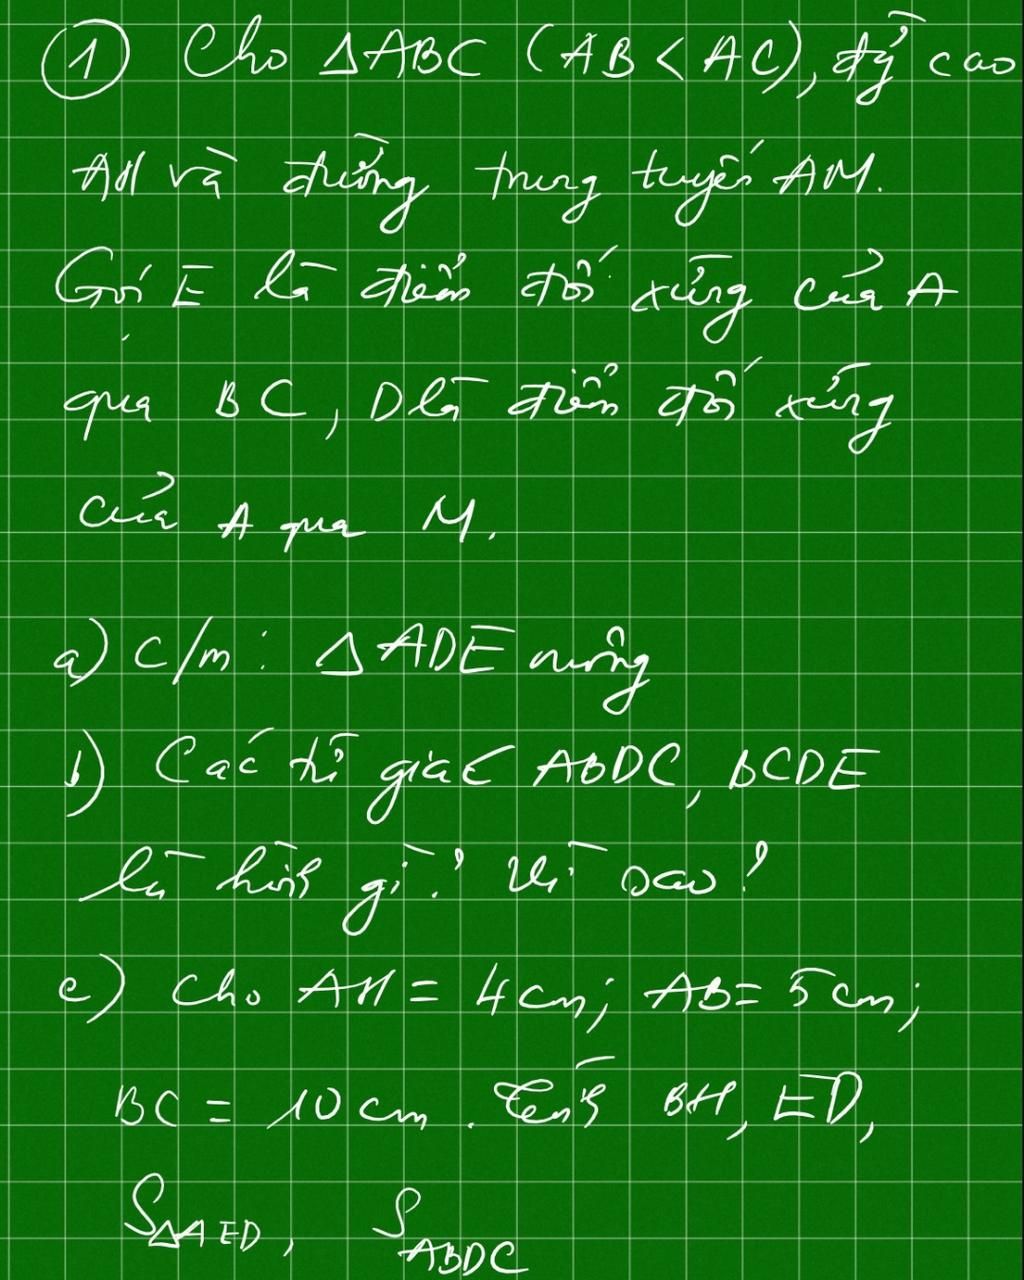 ① Cho ΔABC (AB < AC), đg̉ cao
AH và đường trung tuyến AM.
Gọi E là điểm đối xứng của A
qua BC, D là điểm đối xứng
của A qua M.
a) C/m : Δ ADE vuông
b) Các tứ giác ABDC, BCDE
là hình gì? Vì sao?
c) Cho AH = 4 cm; AB = 5 cm;
BC = 10 cm. Tính BH, ED,
SΔAED, SABDC